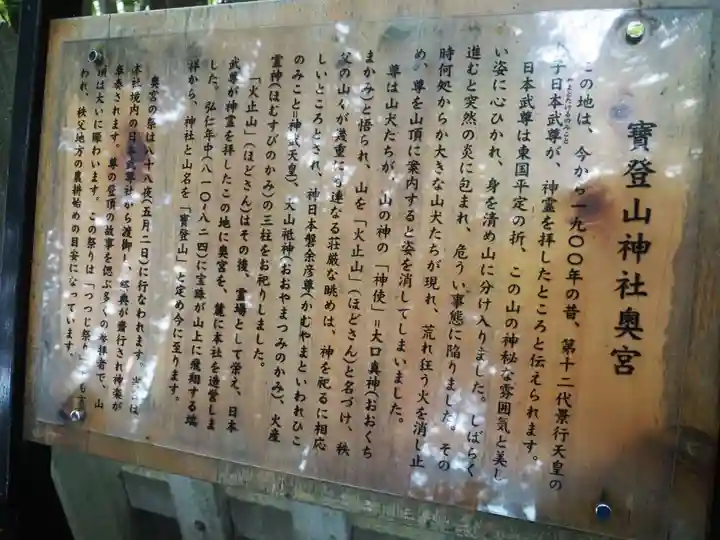 寶登山神社奥宮
この地は、今から一九〇〇年の昔、第十二代景行天皇の
子日本武尊が、神霊を拝したところと伝えられます。
やまとたけるのみこと
日本武尊は東国平定の折、この山の神秘な雰囲気と美し
い姿に心ひかれ、身を清め山に分け入りました。しばらく
進むと突然の炎に包まれ、危うい事態に陥りました。その
時何処からか大きな山犬たちが現れ、荒れ狂う火を消し止
め、尊を山頂に案内すると姿を消してしまいました。
尊は山犬たちが、山の神の「神使」=大口真神(おおくち
まかみ)と悟られ、山を「火止山」(ほどさん)と名づけ、秩
父の山々が幾重にも連なる荘厳な眺めは、神を祀るに相応
しいところとされ、神日本磐余彦尊(かむやまといわれひこ
のみこと=神武天皇)、大山祗神(おおやまつみのかみ)、火産
霊神(ほむすびのかみ)の三柱をお祀りしました。
「火止山」(ほどさん)はその後、霊場として栄え、日本
武尊が神霊を拝したこの地に奥宮を、麓に本社を造営しま
した。弘仁年中(八一〇~八二四)に宝珠が山上に飛翔する瑞
祥から、神社と山名を「寶登山」と定め今に至ります。
奥宮の祭は八十八夜(五月二日)に行なわれます。当日は
本社境内の日本武尊社から渡御し、祭典が齋行され神楽が
奉奏されます。尊の登頂の故事を偲ぶ多くの参拝者で、山
頂は大いに賑わいます。この祭りは「つつじ祭り」とも
われ、秩父地方の農耕始めの目安になっています。